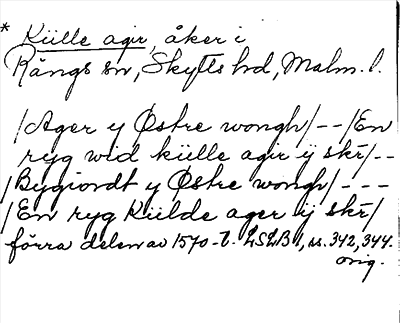 * Külle agir, åker i
Rängs sn, Skytts hd, Malm. l.
/Ager y Østre wongh/--/En
ryg wid külle agir ÿ skr/--
/Bygiordt y Østre wongh/---
/En ryg Kiilde ager ÿ skr/
förra delen av 1570-t. LSLB 1, ss. 342, 344.
orig.